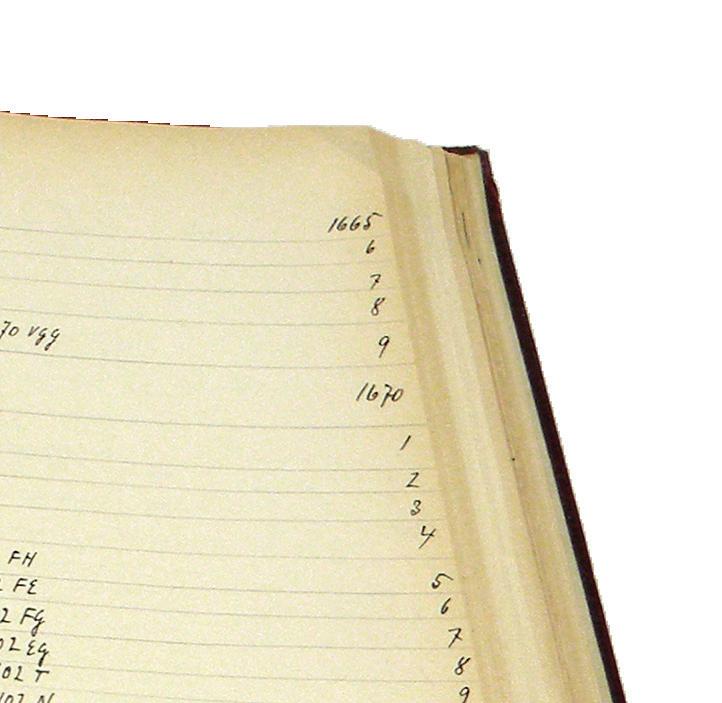 1665
6
7
8
70 vgg 9
1670
1
2
3
4
FH
5
FE
6
2 Fg
7
02 Eg
8
102 T
9
102 N